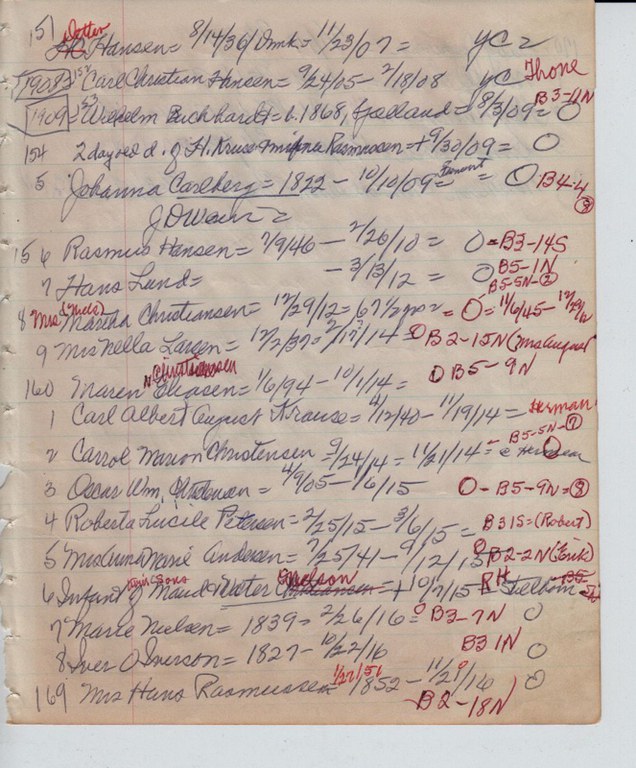 151 Dotter
Hansen = 8/14/36/Dmk = 11/23/07 = yc =
1908 = 152 Carl Christian Hansen = 9/24/05 - 2/18/08 yc Thone
1909 = 53 Wilhelm Buchhardt = b. 1868, Jylland = 8/3/09 = 0 B3-11N
154 2 day old d. of H. Kruse + mifna Rasmussen = + 9/30/09 = 0
5 Johanna Carlberg = 1822 - 10/10/09 = = 0 B4-4
156 Rasmus Hansen = 7/9/46 - 2/26/10 = 0 = B3-14S
7 Hans Lund = - 3/13/12 = 0 B5-1N
B5-5N-
8 Mrs Martha Christiansen = 12/29/12 = 67 1/2 mo = 0 = 11/6/45 - 12/29/12
9 Mrs Nella Larsen = 12/2/37 = 2/17/14 = 0 B2-15N (Mrs August
Christiansen
160 Maren Eliasen = 1/6/94 - 10/1/14 = 0 B5-9N
1 Carl Albert August Krause = 4/12/40 - 11/19/14 = Herman
2 Carrol Marion Christensen 9/24/14 = 11/21/14 = B5-5N-
3 Oscar Wm, Andersen = 4/9/05 - 1/6/15 0 - B5-9N =
4 Roberta Lucile Petersen = 2/25/15 - 3/6/15 = B3 1S = (Robert)
5 Mrs Anna Marie Andersen = 7/25/41 - 9/12/15 B2-2N (Erik)
6 Infant of Maud twin sons Meter Nelson = + 10/7/15 RH Stelborn
7 Marie Nielsen = 1839 = 2/26/16 = 0 B3-7N 0
8 Iver O Iverson = 1827 - 10/22/16 B3 1N 0
169 Mrs Hans Rasmussen = 1/27/51 1852 - 11/21/16 0 0
B2-18N